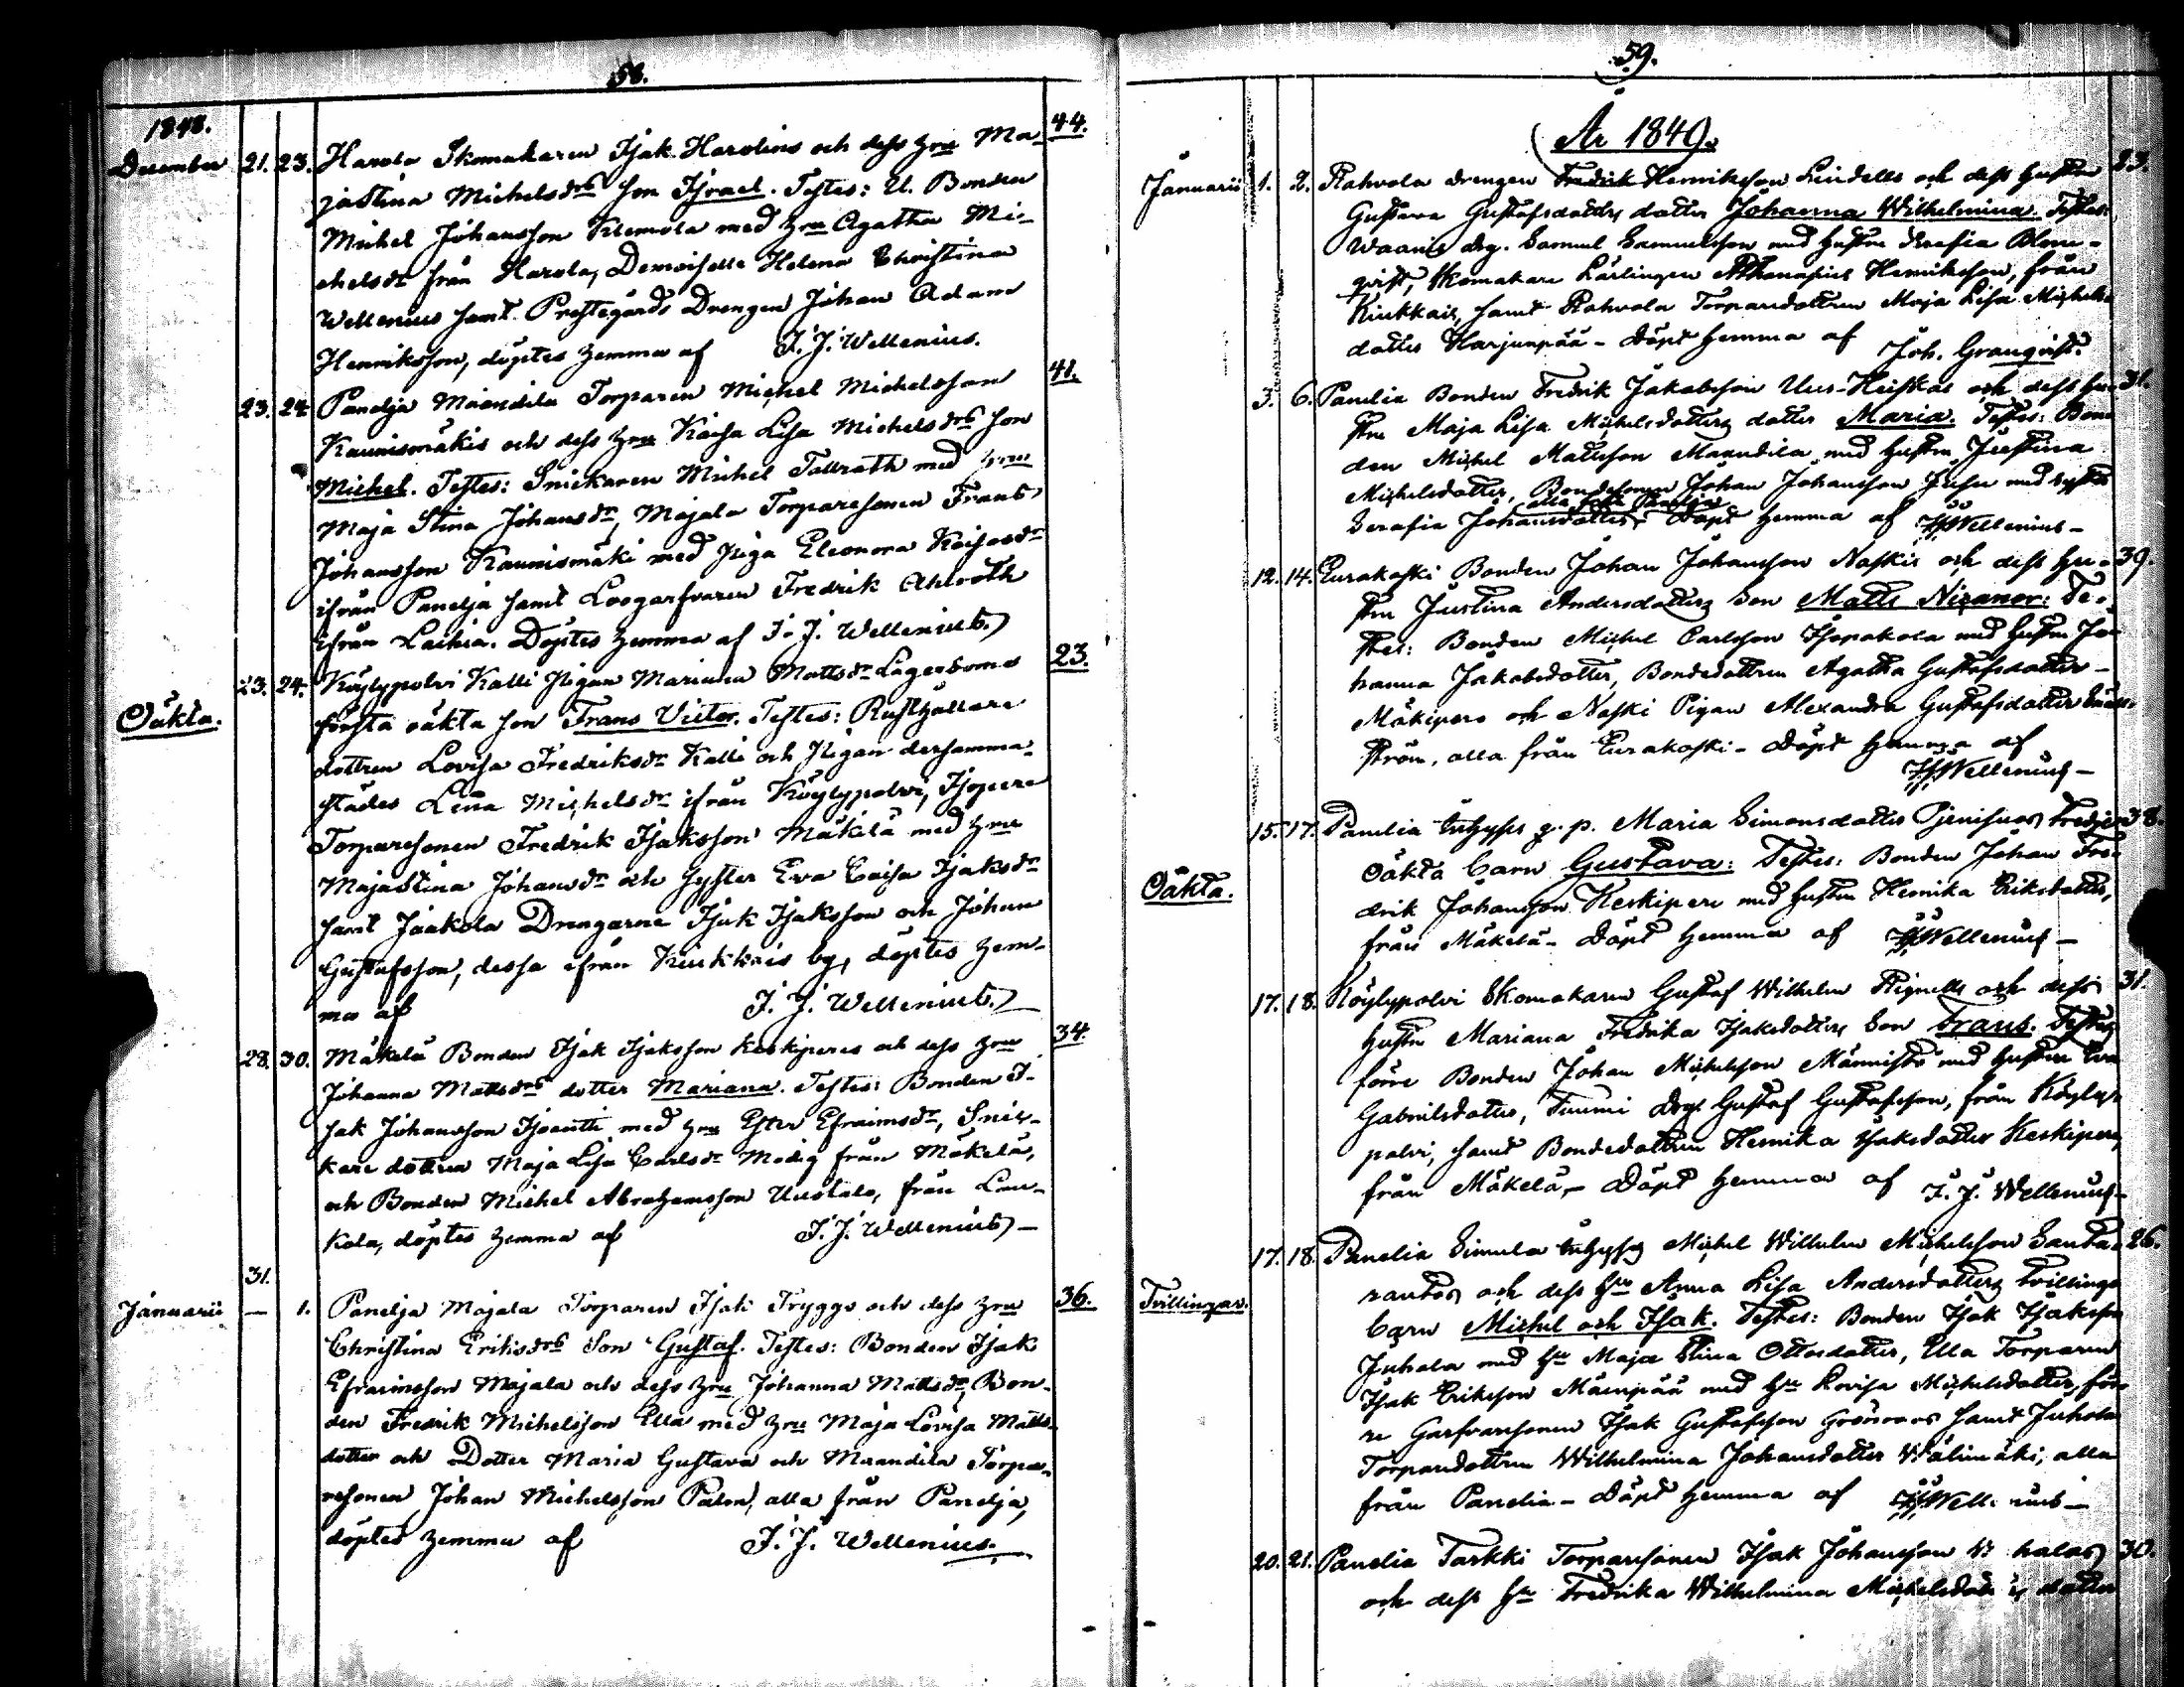 58.
1848.
December 21. 23. Harola Skomakaren Isak Harolins och dess hru Ma- 44.
jaStina Michelsdrs son Israel. Testes: U. Bonden
Michel Johansson Klemola med hru Agatha Mi-
chelsdr från Harola, Demoiselle Helena Christina
Wellenius samt Prestegårds Drengen Johan Adam
Henriksson, döptes hemma af J. J. Wellenius.
23. 24. Panelja Maandila Torparen Michel Michelsson 41.
Kaunismäkis och dess hru Kaisa Lisa Michelsdrs son
Michel. Testes: Snickaren Michel Tallroth med hru
Maja Stina Johansdr, Majala Torparesonen Frans
Johansson Kaunismäki med piga Eleonora Kaisasdr
ifrån Panelja samt Loogarfvaren Fredrik Ahlroth
ifrån Laihia. Döptes hemma af J. J. Wellenius.
Oäkta. 23. 24. Köylypolvi Kalli Pigan Mariana Mattsdr Lagerboms 23.
första oäkta son Frans Victor. Testes: Rusthållare
dottren Lovisa Fredriksdr Kalli och Pigan dersamma-
städes Lena Michelsdr ifrån Köylypolvi,
Torparesonen Fredrik Isaksson Mäkilä med hru
MajaStina Johansdr och Syster Eva Caisa Isaksdr
samt Jaakola Drengarne Isak Isaksson och Johan
Gustafsson, dessa ifrån Kiukkais by, döptes hem-
ma af J. J. Wellenius.
28. 30. Mäkelä Bonden Isak Isaksson Keskiperes och dess hru 34.
Johanna Mattsdrs dotter Mariana. Testes: Bonden I-
sak Johansson med hru Ester Efraimsdr, Snic-
kare dottren Maja Lisa Carlsdr Modig från Mäkelä,
och Bonden Michel Abrahamsson Uusitalo, från Lau-
kola, döptes hemma af J. J. Wellenius
31.
Januarii — 1. Panelja Majala Torparen Isak Tryggs och dess hru 36.
Christina Eriksdrs Son Gustaf. Testes: Bonden Isak
Efraimsson Majala och dess hru Johanna Mattsdr Bon-
den Fredrik Michelsson Ella med hru Maja Lovisa Matts-
dotter och Dotter Maria Gustava och Maandila Torpa-
resonen Johan Michelsson Palm, alla från Panelja,
döptes hemma af J. J. Wellenius.
59.
År 1849.
Januarii 1. 2. Rahvola drengen Fredrik Henriksson Lindells och dess hustru 23.
Gustava Gustafsdotters dotter Johanna Wilhelmina. Testes:
Waanis drg. Samuel Samuelsson med hustru Serafia Blom-
qvist, Skomakare Lärlingen Athanasius Henriksson, från
Kiukkais, samt Rahvola Torparedottren Maja Lisa Michels-
dotter Harjunpää - Döpt hemma af Joh. Granqvist.
3. 6. Panelia Bonden Fredrik Jakobsson Uus-Heiskas och dess hu- 31.
stru Maja Lisa Michelsdotters dotter Maria. Testes: Bon-
den Michel Mattsson Maandila med hustru Justina
Michelsdotter, Bondesonen Johan Johansson med syster
alla från Panelia
Serafia Johansdotter. Döpt hemma af JJWellenius -
12. 14. Eurakoski Bonden Johan Johansson Naskis och dess hu- 39.
stru Justina Andersdotters Son Matts Nicanor: Te-
stes: Bonden Michel Carlsson Isopakola med hustru Jo-
hanna Jakobsdotter, Bondedottren Agatha Gustafsdotter
Mäkipere och Naski Pigan Alexandra Gustafsdotter
ström, alla från Eurakoski - Döpt hemma af
JJWellenius -
Oäkta. 15. 17. Panelia Inhyses q. p. Maria Simonsdotter tredje 38.
Oäkta barn Gustava: Testes: Bonden Johan Fre-
drik Johansson Keskipere med hustru Henrika Eriksdotter,
från Mäkelä - Döpt hemma af JJWellenius -
17. 18. Köylypolvi Skomakaren Gustaf Wilhelm Rignells och dess 31.
hustru Mariana Fredrika Isaksdotters Son Frans. Testes
förre Bonden Johan Michelsson Männistö med hustru Eva
Gabrielsdotter, Tuumi drg. Gustaf Gustafsson, från Köyly-
polvi, samt Bondedottren Henrika Isaksdotter Keskipere,
från Mäkelä, - Döpt hemma af J. J. Wellenius -
Tvillingar. 17. 18. Panelia Simula Inhyses Michel Wilhelm Michelsson Santa- 26.
rantas och dess hu Anna Lisa Andersdotters tvillinge
barn Michel och Isak. Testes: Bonden Isak Isaksson
Juhola med hu Maja Stina Ottosdotter, Ella Torparen
Isak Eriksson Mäenpää med hu Lovisa Michelsdotter, för-
re Garfvaresonen Isak Gustafsson Grönroos samt Juhola
Torparedottren Wilhelmina Johansdotter Wälimäki, alla
från Panelia - Döpt hemma af JJWellenius -
20. 21. Panelia Tarkki Torparesonen Isak Johansson 30.
och dess hu Fredrika Wilhelmina Michelsdotters dotter